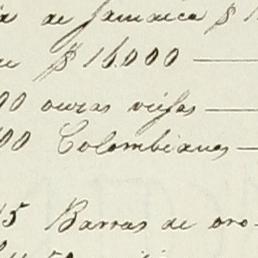 de Jamaica $ 1
$ 16.000
00 onzas viejas
00 Colombianas
15 Barras de oro